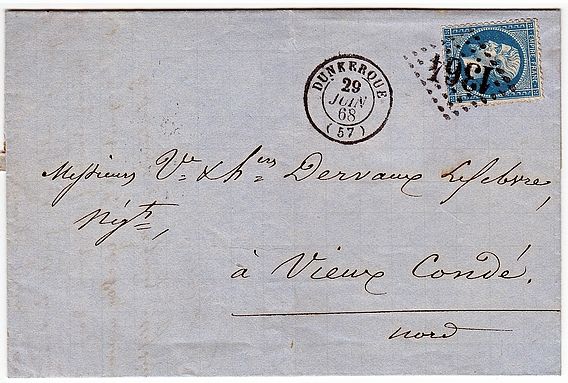 DUNKERQUE
29
JUIN
68
(57)
1364
Messieurs Ve & hers Dervaux Lefebvre,
Négts,
à Vieux Condé.
Nord